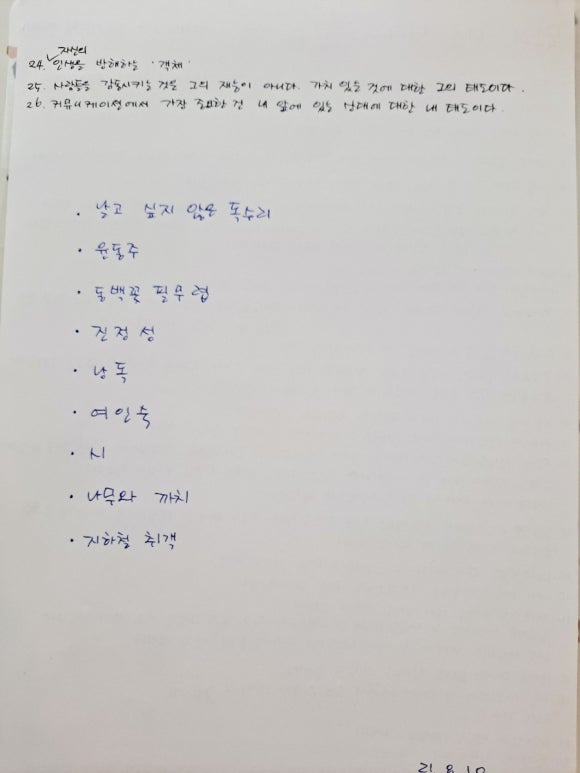 자신의
24. 인생을 방해하는 '객체'
25. 사람들을 감동시키는 것은 그의 재능이 아니다. 가치 있는 것에 대한 그의 태도이다.
26. 커뮤니케이션에서 가장 중요한 건 내 앞에 있는 상대에 대한 내 태도이다.
· 날고 싶지 않은 독수리
· 윤동주
· 동백꽃 필 무렵
· 진정성
· 낭독
· 여인숙
· 시
· 나무와 까치
· 지하철 취객
21. 8. 10